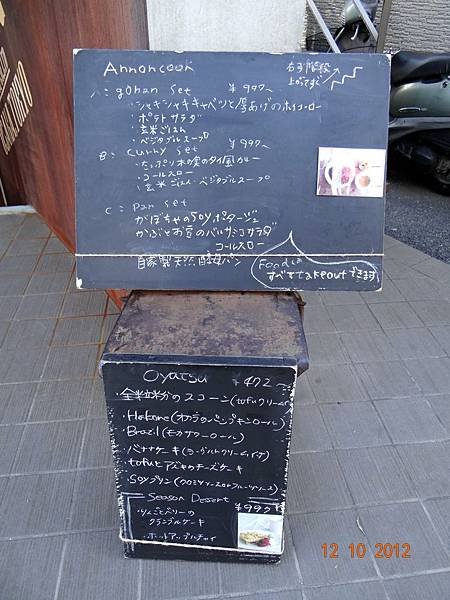 Annoncook
右手階段
上ってすぐ
A: gohan set ¥997~
・シャキシャキキャベツと厚あげのホイコーロー
・ポテトサラダ
・玄米ごはん
・ベジタブルスープ
B: curry set ¥997~
・たっぷり木の実のタイ風カレー
・コールスロー
・玄米ごはん・ベジタブルスープ
C: pan set
かぼちゃのSOYポタージュ
かぶとお豆のバルサミコサラダ
コールスロー
自家製天然酵母パン
Foodは
すべてtakeoutできます
Oyatsu ¥472~
・全粒粉のスコーン(tofuクリーム
・Hakone(オカラのパンプキンロール)
・Brazil(モカサワーロール)
・バナナケーキ(ヨーグルトクリーム
・tofuとアズキのチーズケーキ
・SOYプリン(クロミツソースorフルーツソース)
Season Dessert
¥997
・りんごとベリーの
クランブルケーキ
・ホットアップルチャイ
12 10 2012